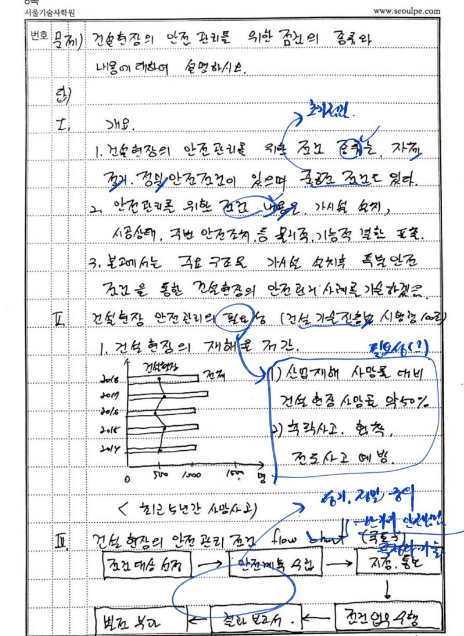 서울기술사학원
www.seoulpe.com
번호
문제) 건설현장의 안전 관리를 위한 점검의 종류와
내용에 대하여 설명하시오.
답)
I. 개요.
초기점검.
1. 건설현장의 안전관리를 위한 점검 종류는, 자체
점검, 정밀안전점검이 있으며 점검도 있다.
2. 안전관리를 위한 점검 내용은, 가시설 설치,
시공상태, 주변 안전조치, 등 물리적, 기능적 결함
3. 본고에서는 주요 구조물 가시설 설치후 특별안전
점검을 통한 건설현장의 안전관리 사례를 기술하겠음.
II. 건설현장 안전관리의 필요성 (건설기술진흥법 시행령
1. 건설현장의 재해율 저감.
필요성(?)
건설현장
전체
2018
2017
2016
2015
2014
0 500 1,000 1500 명
1) 산업재해 사망률 대비
건설현장 사망률 약50%
2) 추락사고, 협착,
전도사고 예방.
< 최근 5년간 사망사고>
정기, 정밀,
III. 건설현장의 안전관리 점검 flow chart
점검 대상 선정
안전계획 수립
지정. 통보
점검 업무 수행
결과 보고서.
벌점 부과